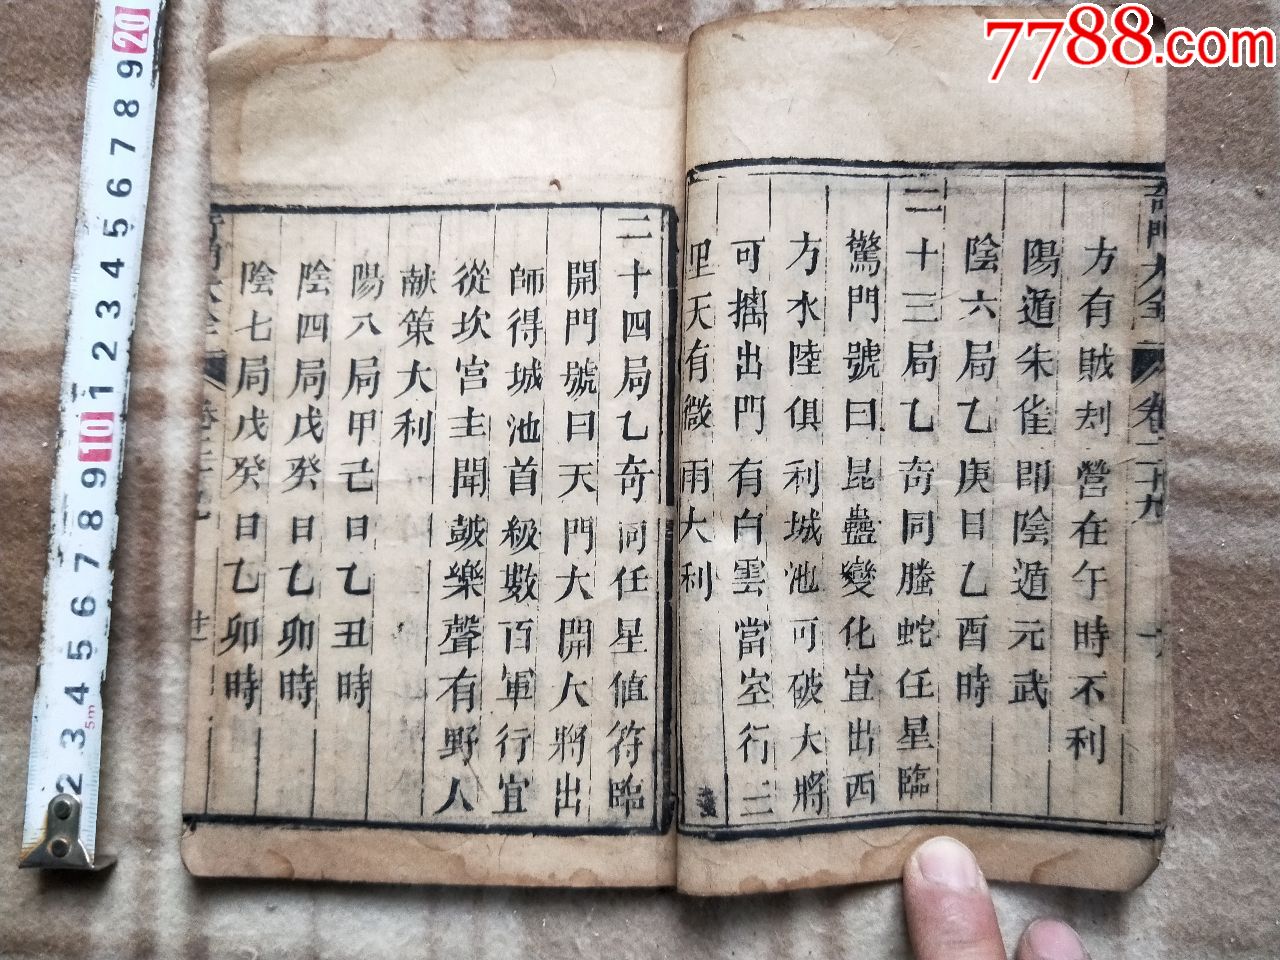 7788.com
奇門大全
卷二十九
方有賊刦營在午時不利
陽遁朱雀即陰遁元武
陰六局乙庚日乙酉時
二十三局乙奇同螣蛇任星臨
驚門號曰昆蠱變化宜出西
方水陸俱利城池可破大將
可擕出門有白雲當空行三
里天有微雨大利
二十四局乙奇同任星值符臨
開門號曰天門大開大將出
師得城池首級數百軍行宜
從坎宮主聞皷樂聲有野人
献策大利
陽八局甲己日乙丑時
陰四局戊癸日乙卯時
陰七局戊癸日乙卯時
20
9
8
7
6
5
4
3
2
1
10
9
8
7
6
5
4
3
2
5m